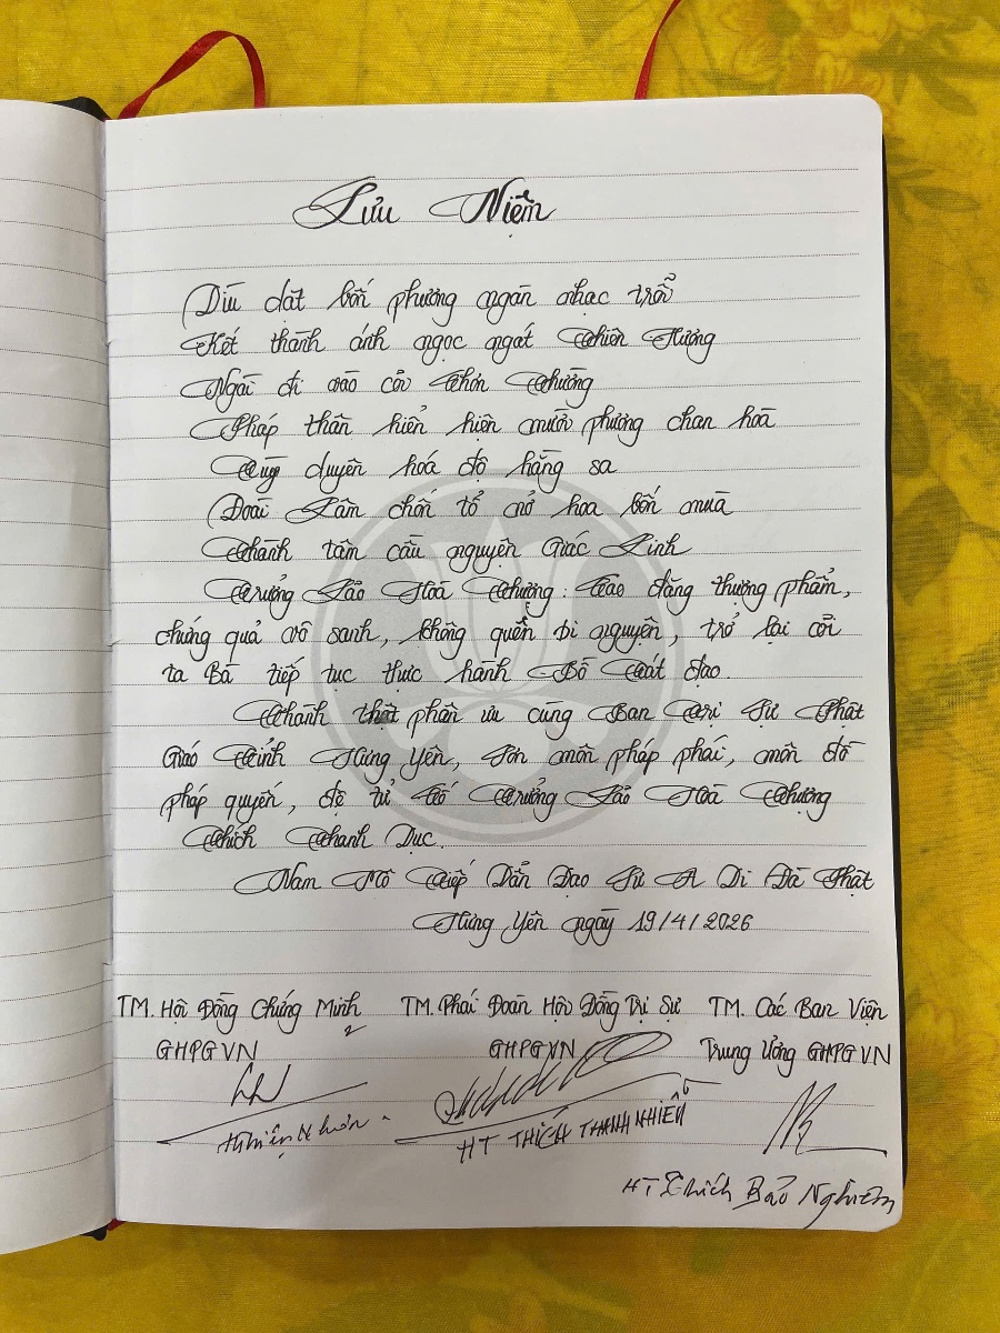 Lưu Niệm
Dìu dặt bốn phương ngàn nhạc trổi
Kết thành ánh ngọc ngát Thiên Hương
Ngài đi vào cõi Chơn Thường
Pháp thân hiển hiện mười phương chan hoà
Tùy duyên hoá độ hằng sa
Đoái Lâm chốn tổ nở hoa bốn mùa
Thành tâm cầu nguyện Giác Linh
Trưởng Lão Hoà Thượng: Cao đăng thượng phẩm,
chứng quả vô sanh, không quên bi nguyện, trở lại cõi
ta Bà tiếp tục thực hành Bồ Tát đạo.
Thành thật phân ưu cùng Ban Trị Sự Phật
Giáo Tỉnh Hưng Yên, Sơn môn pháp phái, môn đồ
pháp quyến, đệ tử Cố Trưởng Lão Hoà Thượng
Thích Thanh Dục.
Nam Mô Tiếp Dẫn Đạo Sư A Di Đà Phật
Hưng Yên ngày 19/4/2026
TM. Hội Đồng Chứng Minh TM. Phái Đoàn Hội Đồng Trị Sự TM. Các Ban Viện
GHPGVN GHPGVN Trung Ương GHPGVN
Thiện Nhơn
HT THÍCH THANH NHIỄU
HT Thích Bảo Nghiêm